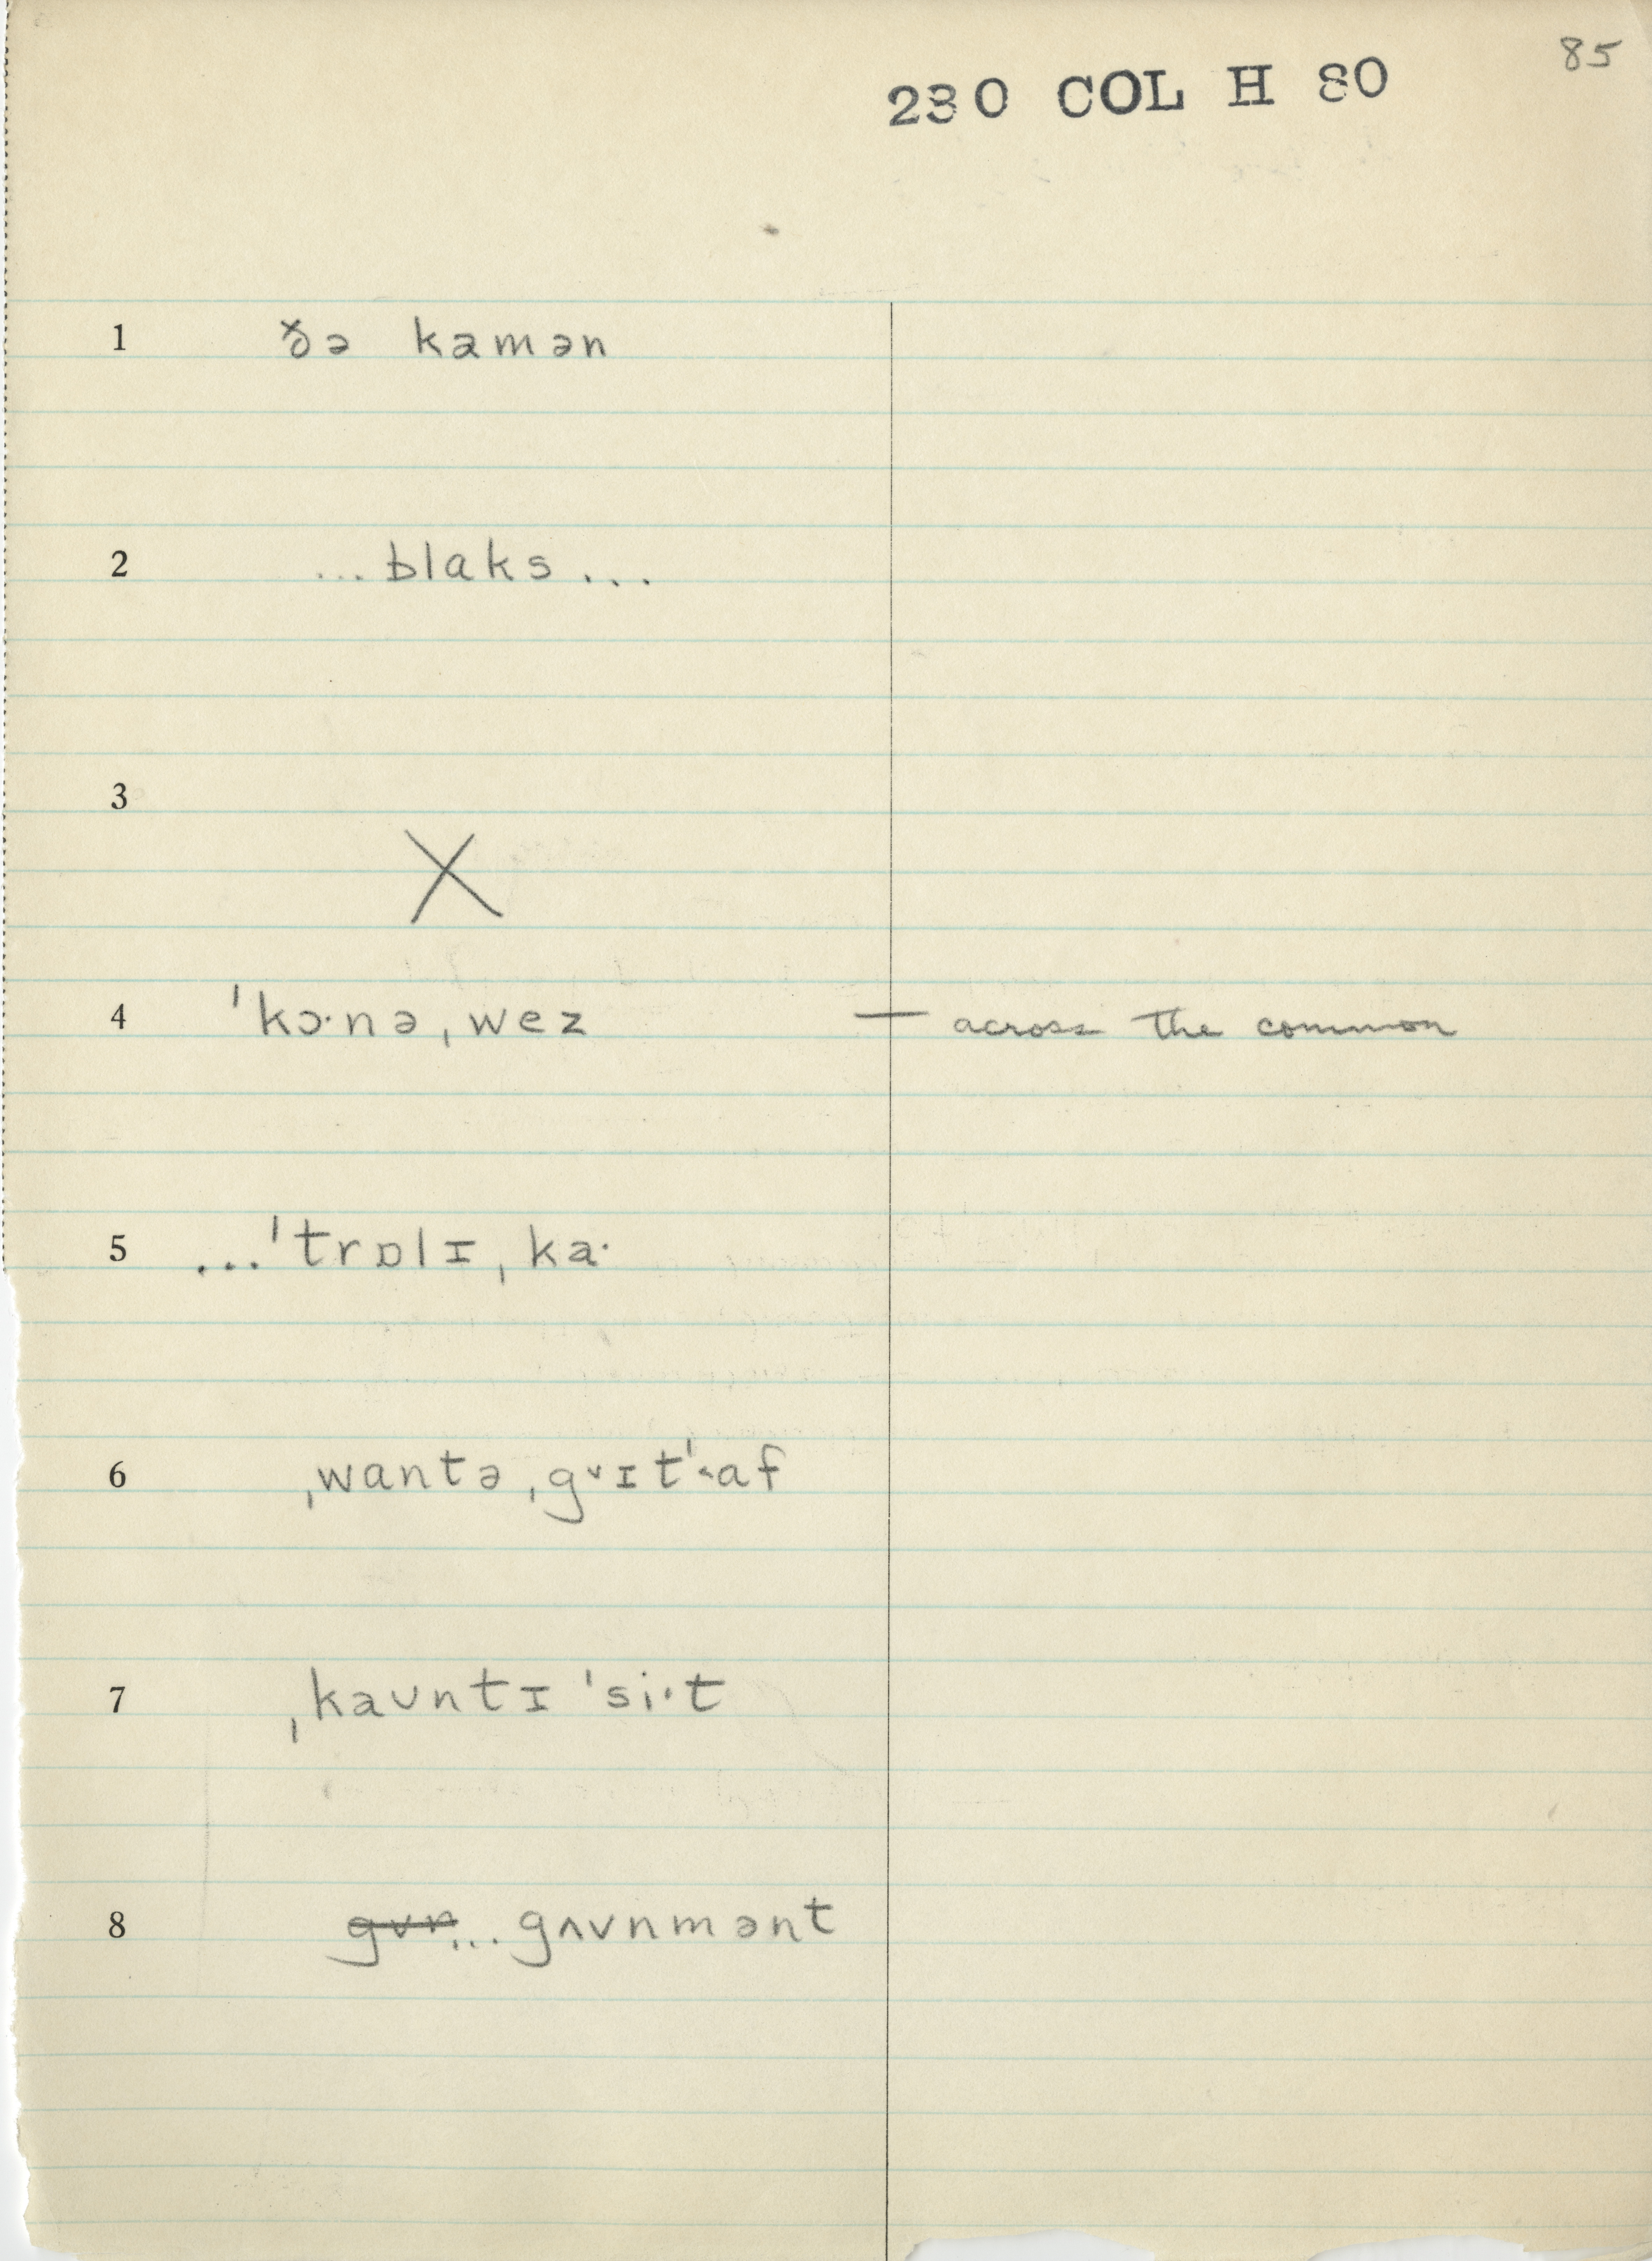 85
230 COL H 80
1 ðə kamən
2 ...blaks...
3 X
4 ˈkɔ·nəˌwez — across the common
5 ...ˈtrɒlɪˌka·
6 ˌwantəˌg˅ɪtˈ˂af
7 ˌkaʊntɪ ˈsi·t
8 gʌvnmənt